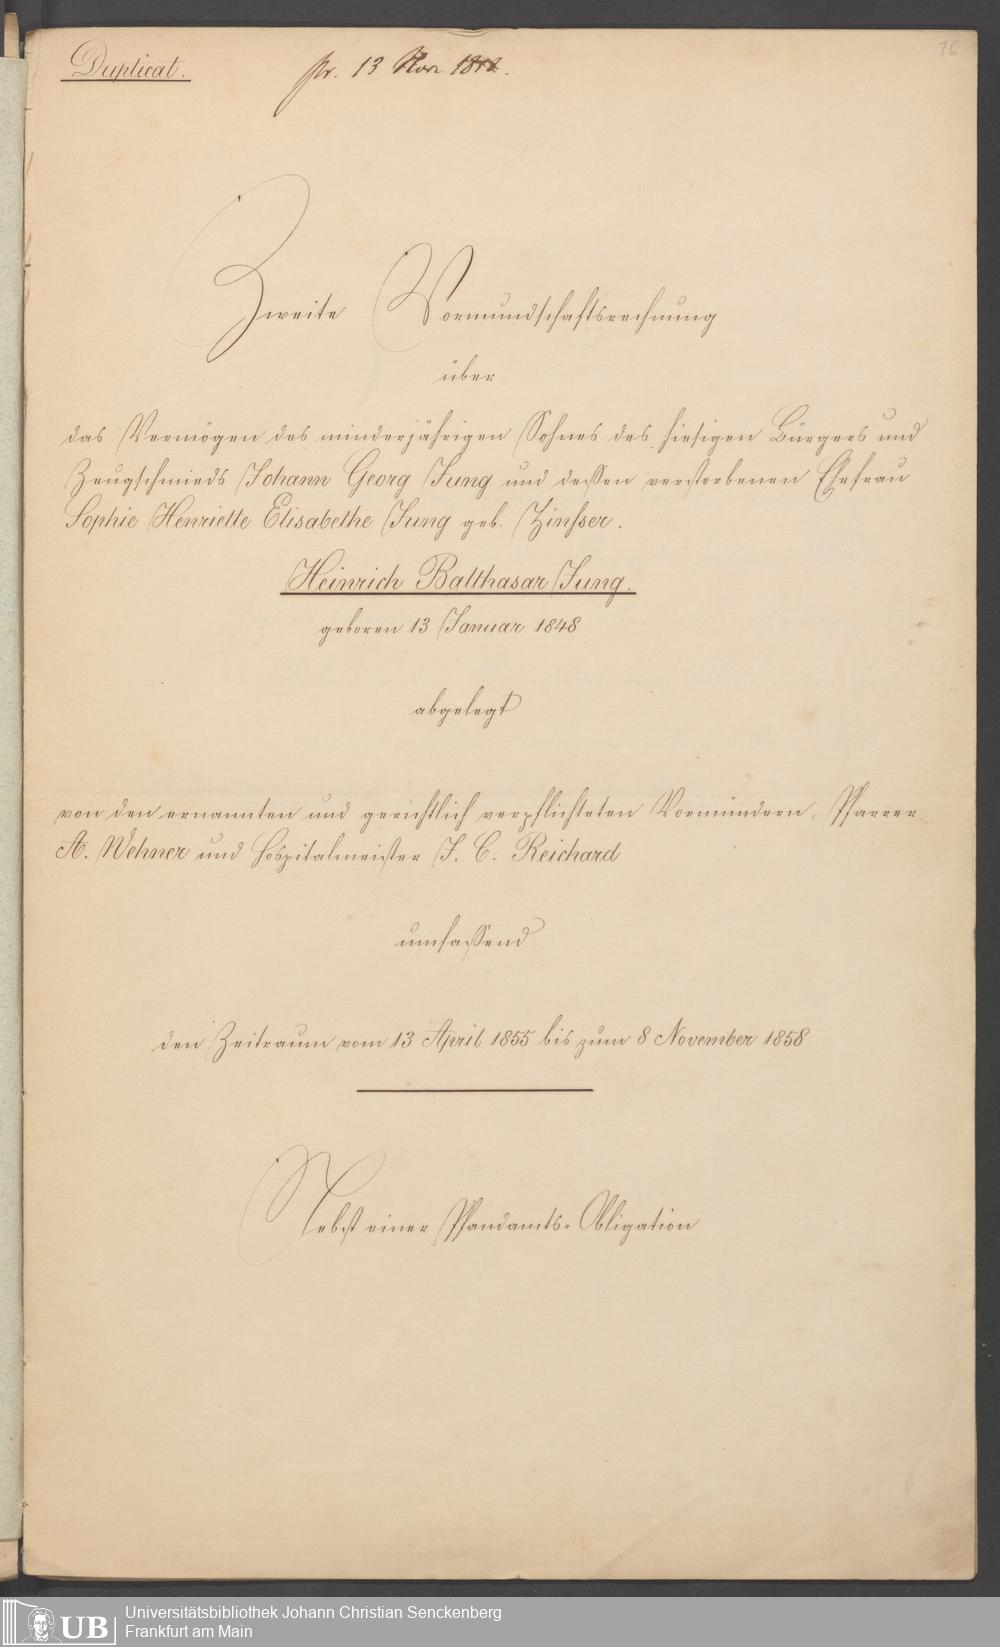 76
Duplicat. pr. 13 Nov. 1858.
Zweite Vormundschaftsrechnung
über
das Vermögen des minderjährigen Sohnes des hiesigen Bürgers und
Zeugschmieds Johann Georg Jung und dessen verstorbenen Ehefrau
Sophie Henriette Elisabethe Jung geb. Zinsser.
Heinrich Balthasar Jung.
geboren 13 Januar 1848
abgelegt
von den ernannten und gerichtlich verpflichteten Vormündern, Pfarrer
A. Wehner und Hospitalmeister J. C. Reichard
umfassend
den Zeitraum vom 13 April 1855 bis zum 8 November 1858
Nebst einer Pfandamts-Obligation
UB
Universitätsbibliothek Johann Christian Senckenberg
Frankfurt am Main